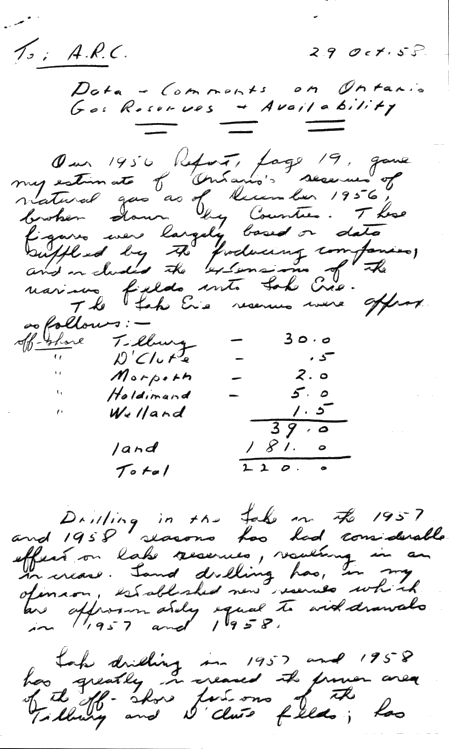 To: A.R.C. 29 Oct. 58
Data & Comments on Ontario
Gas Reserves & Availability
Our 1956 Report, page 19, gave
my estimate of Ontario's reserves of
natural gas as of December 1956,
broken down by Counties. These
figures were largely based on data
supplied by the producing companies,
and included the extensions of the
various fields into Lake Erie.
The Lake Erie reserves were approx.
as follows: -
off-shore Tilbury - 30.0
" D'Clute - .5
" Morpeth - 2.0
" Haldimand - 5.0
" Welland 1.5
39.0
land 181.0
Total 220.0
Drilling in the Lake in the 1957
and 1958 seasons has had considerable
effect on lake reserves, resulting in an
increase. Land drilling has, in my
opinion, established new reserves which
are approximately equal to withdrawals
in 1957 and 1958.
Lake drilling in 1957 and 1958
has greatly increased the proven area
of the off-shore portions of the
Tilbury and D'Clute fields; has